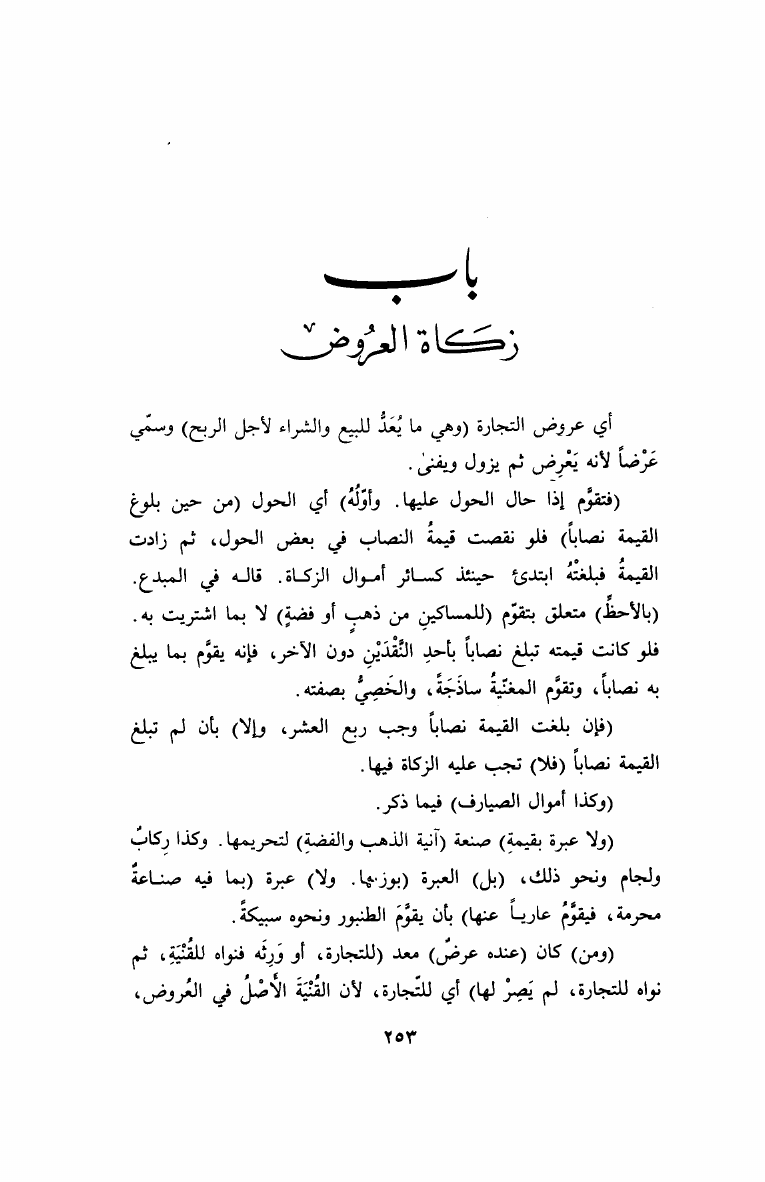 باب
زكاة العروض
أي عروض التجارة (وهي ما يُعَدُّ للبيع والشراء لأجل الربح) وسمّي
عَرْضاً لأنه يَعْرِض ثم يزول ويفنىٰ.
(فتقوَّم إذا حال الحول عليها. وأوّلُهُ) أي الحول (من حين بلوغ
القيمة نصاباً) فلو نقصت قيمةُ النصاب في بعض الحول، ثم زادت
القيمةُ فبلغتْهُ ابتدئ حينئذ كسائر أموال الزكاة. قاله في المبدع.
(بالأحظِّ) متعلق بتقوّم (للمساكينِ من ذهبٍ أو فضةٍ) لا بما اشتريت به.
فلو كانت قيمته تبلغ نصاباً بأحدِ النَّقْدَيْنِ دون الآخر، فإنه يقوَّم بما يبلغ
به نصاباً، وتقوَّم المغنّيةُ ساذَجَةً، والخَصِيُّ بصفته.
(فإن بلغت القيمة نصاباً وجب ربع العشر، وإلا) بأن لم تبلغ
القيمة نصاباً (فلا) تجب عليه الزكاة فيها.
(وكذا أموال الصيارف) فيما ذكر.
(ولا عبرة بقيمةِ) صنعة (آنية الذهب والفضةِ) لتحريمها. وكذا رِكابٌ
ولجام ونحو ذلك، (بل) العبرة (بوزنها. ولا) عبرة (بما فيه صناعةٌ
محرمة، فيقوَّمُ عارياً عنها) بأن يقوَّمَ الطنبور ونحوه سبيكةً.
(ومن) كان (عنده عرضٌ) معد (للتجارة، أو وَرِثَه فنواه للقُنْيَةِ، ثم
نواه للتجارة، لم يَصِرْ لها) أي للتّجارة، لأن القُنْيَةَ الأَصْلُ في العُروض،
٢٥٣